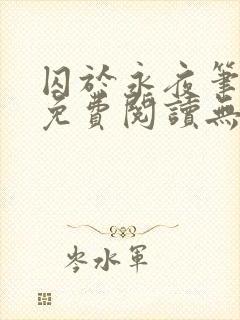 囚於永夜筆
免費閱讀無
岑水軍